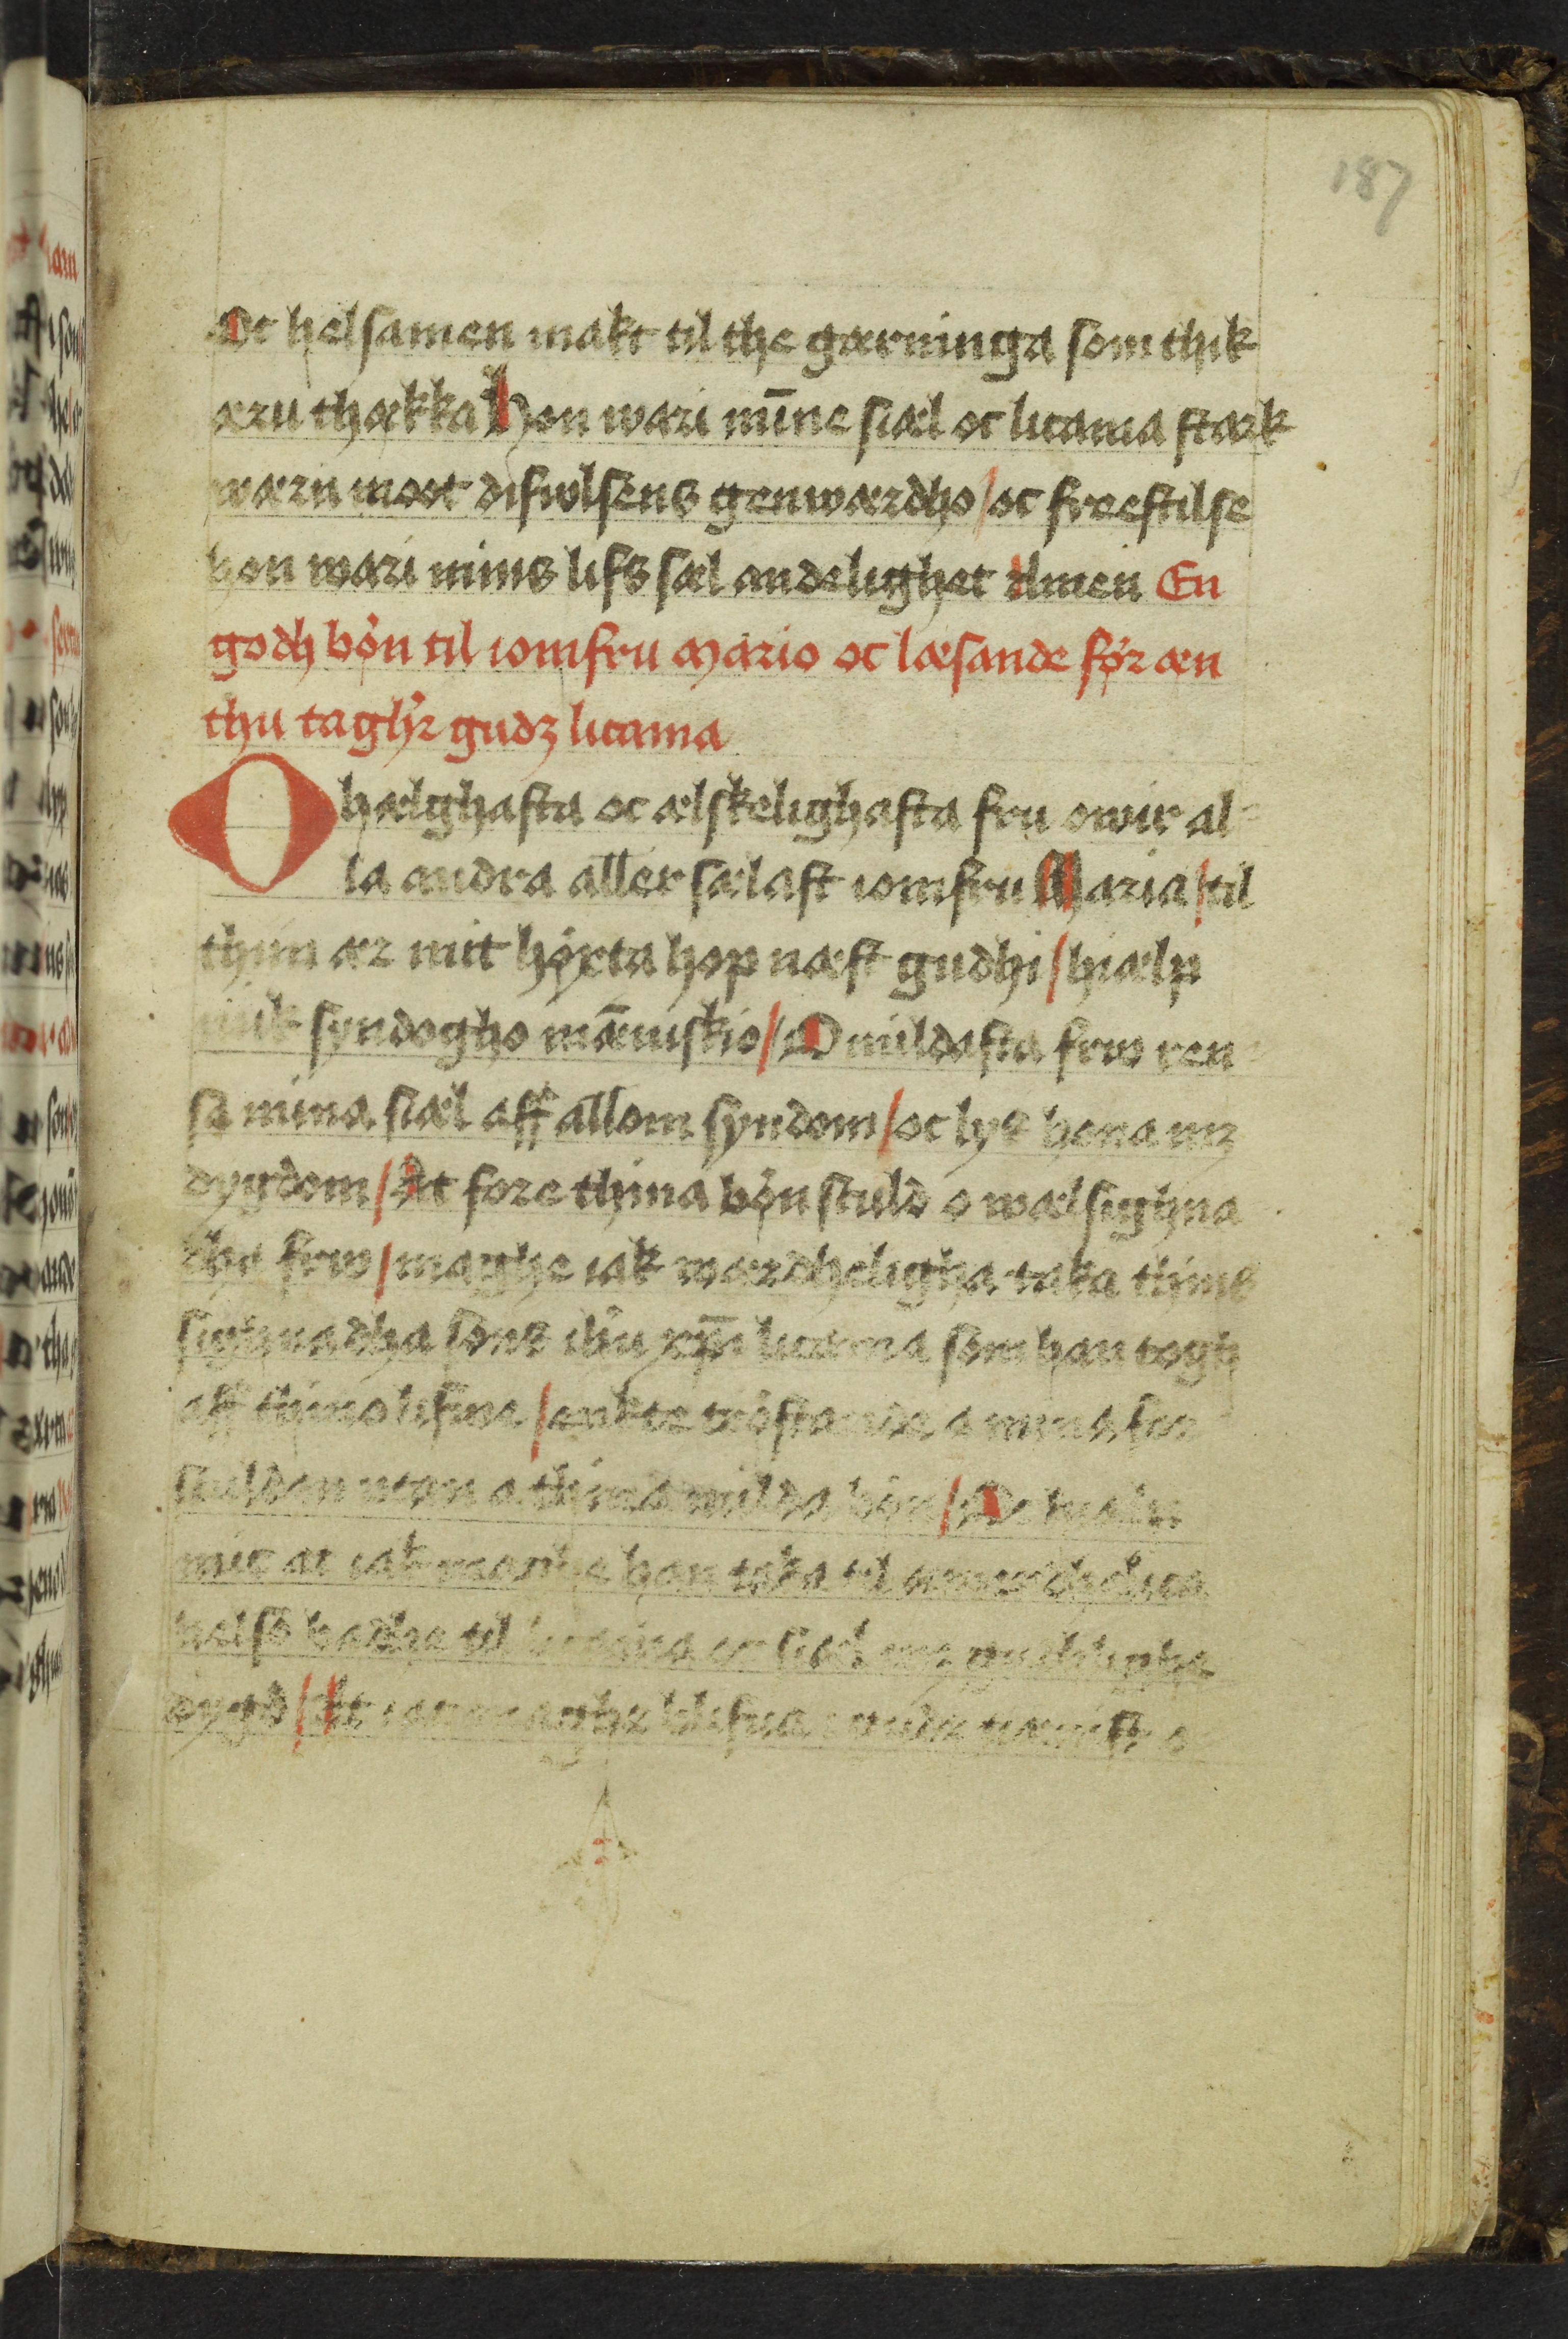 187
Oc helsamen makt til the gærninga som thik
æru thækka Hon wari mīne siæl oc licama stærk
wærn moot diefwlsens genwærdho / oc freestilse
hon wari mins lifs sæl andelighet Amen En
godh bøn til iomfru Mario oc læsande før æn
thu taghr gudz licama
O hælghasta oc ælskelighasta fru owir al-
la andra aller sælast iomfru Maria / til
thin ær mit høxta hop næst gudhi / hiælp
mik syndogho mæ̅niskio / O mildasta frw ren-
sa mina siæl aff allom syndom / oc lys hona mz
dygdom / At fore thina bøn skuld o wælsighna
dha frw / maghe iak wærdhelígha taka thins
sighnadha sons ihū xp̄i licama som han togh
aff thino lifwe / ænkte trøstande a mina for
skuldan utan a thina milda bøn / Oc hiælp
mic at iak maghe han taka til æwerdhelica
helso badhe til licama oc siæl mz gudhlighe
dygd / At iac maghe blifua i gudz tiænist o